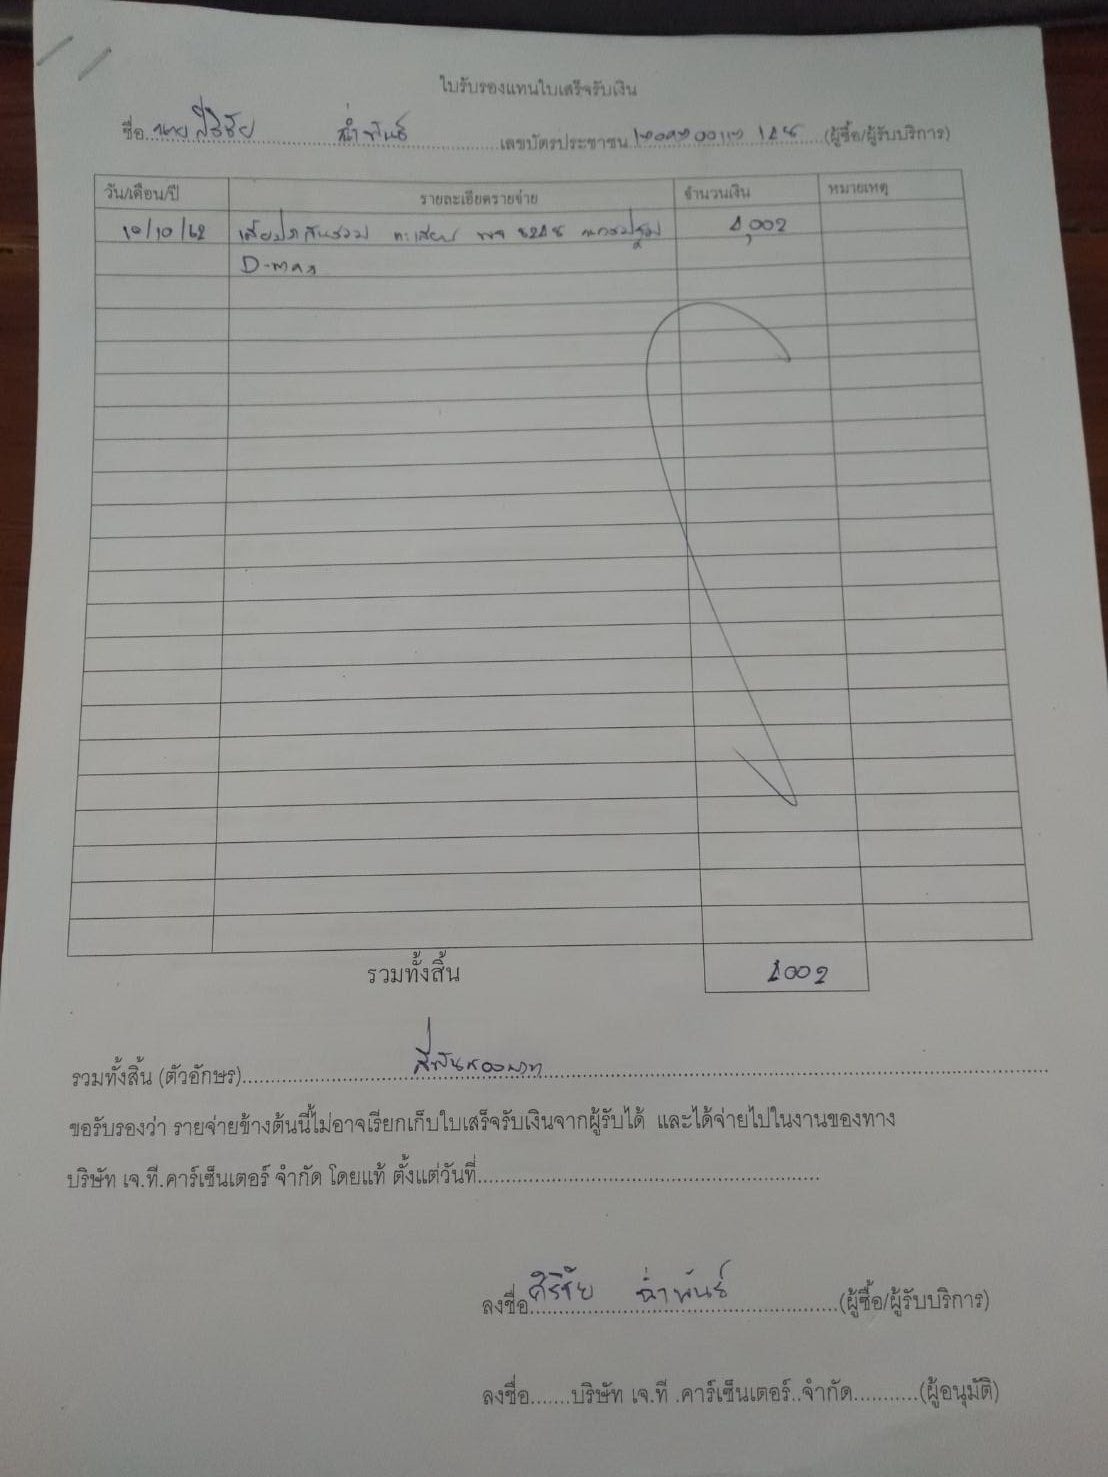 ใบรับรองแทนใบเสร็จรับเงิน
ชื่อ นาย ศิริชัย ฉ่ำพันธ์ เลขบัตรประชาชน (ผู้ซื้อ/ผู้รับบริการ)
วัน/เดือน/ปี รายละเอียดรายจ่าย จำนวนเงิน หมายเหตุ
10/10/62 นครปฐม 4,002
D-max
รวมทั้งสิ้น 4002
รวมทั้งสิ้น (ตัวอักษร) สี่พันสองบาท
ขอรับรองว่า รายจ่ายข้างต้นนี้ไม่อาจเรียกเก็บใบเสร็จรับเงินจากผู้รับได้ และได้จ่ายไปในงานของทาง
บริษัท เจ.ที.คาร์เซ็นเตอร์ จำกัด โดยแท้ ตั้งแต่วันที่
ลงชื่อ ศิริชัย ฉ่ำพันธ์ (ผู้ซื้อ/ผู้รับบริการ)
ลงชื่อ.......บริษัท เจ.ที .คาร์เซ็นเตอร์..จำกัด...........(ผู้อนุมัติ)